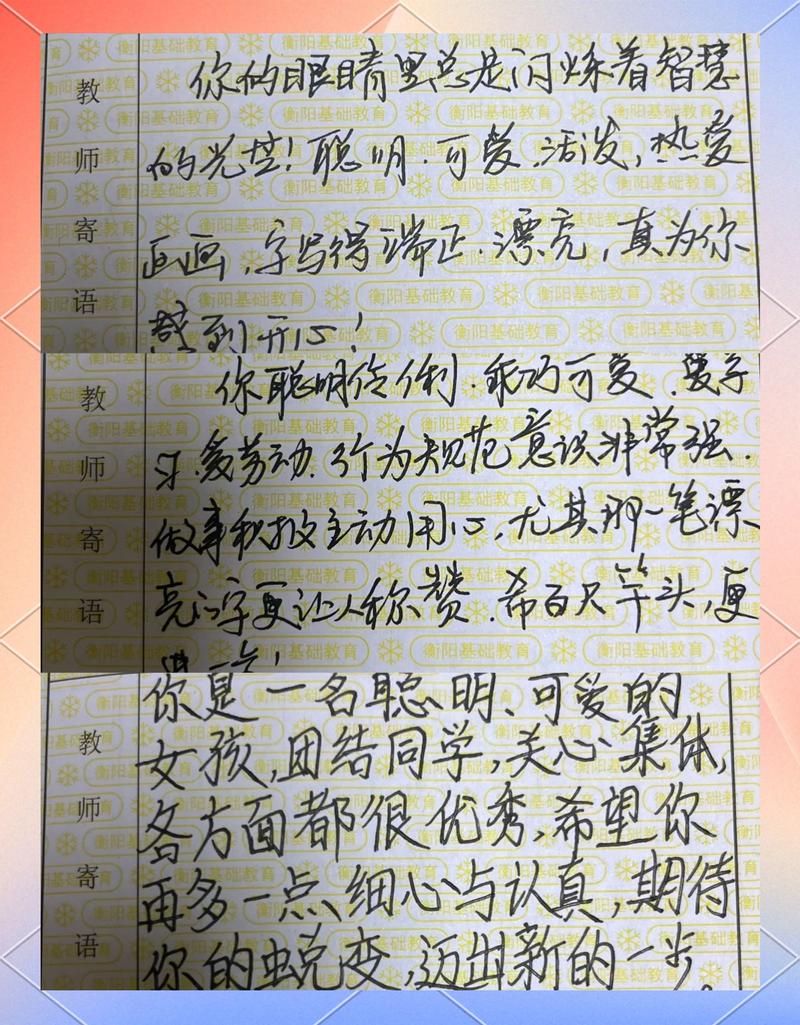 教师寄语
你的眼睛里总是闪烁着智慧
的光芒！聪明.可爱.活泼,热爱
画画,字写得端正.漂亮,真为你
感到开心！
教师寄语
你聪明伶俐.乖巧可爱.爱学
习.爱劳动.行为规范意识非常强.
做事积极主动用心,尤其那一笔漂
亮的字更让人称赞.希百尺竿头,更
进一步！
教师寄语
你是一名聪明、可爱的
女孩,团结同学,关心集体,
各方面都很优秀,希望你
再多一点细心与认真,期待
你的蜕变,迈出新的一步。
衡阳基础教育